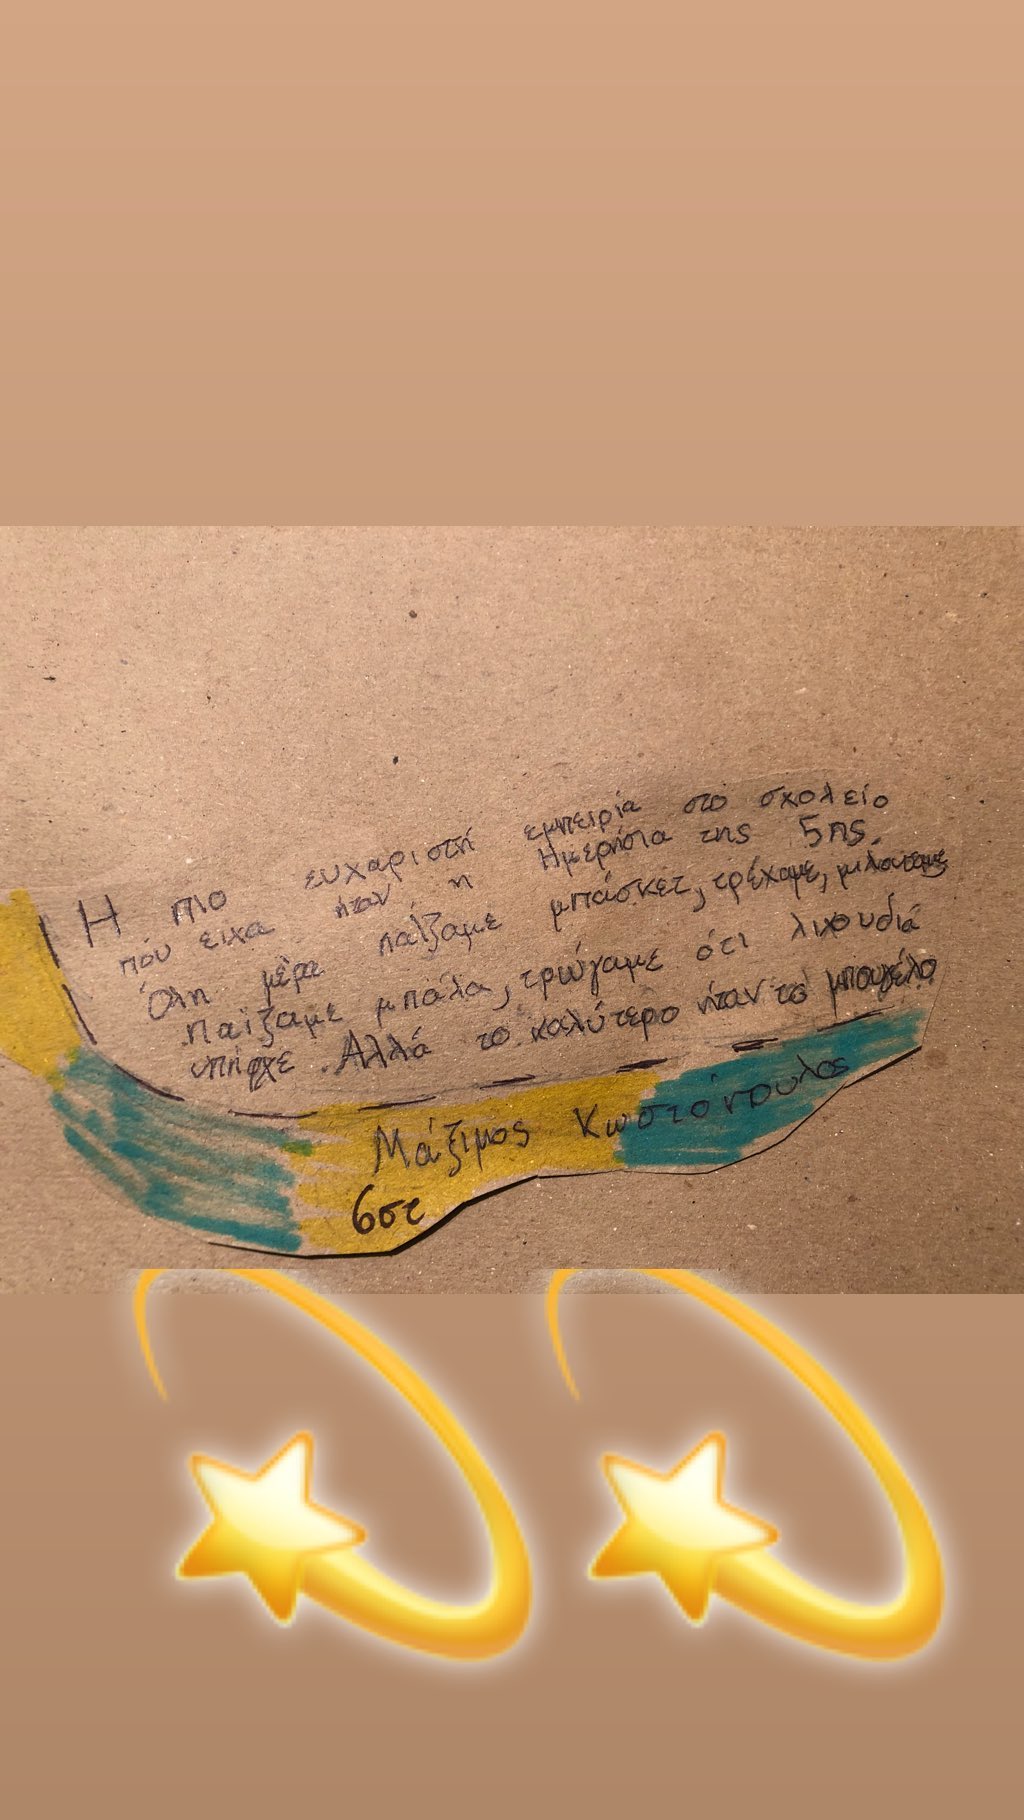 Η πιο ευχαριστή εμπειρία στο σχολείο
πόυ ειχα ήταν η Ημερήσια της 5ης.
Όλη μέρα παίζαμε μπάσκετ, τρέχαμε, μιλούσαμε
παίζαμε μπάλα, τρώγαμε ότι λιχουδιά
υπήρχε. Αλλά το καλύτερο ήταν το μπουγέλο
Μάξιμος Κωστόπουλος
6στ